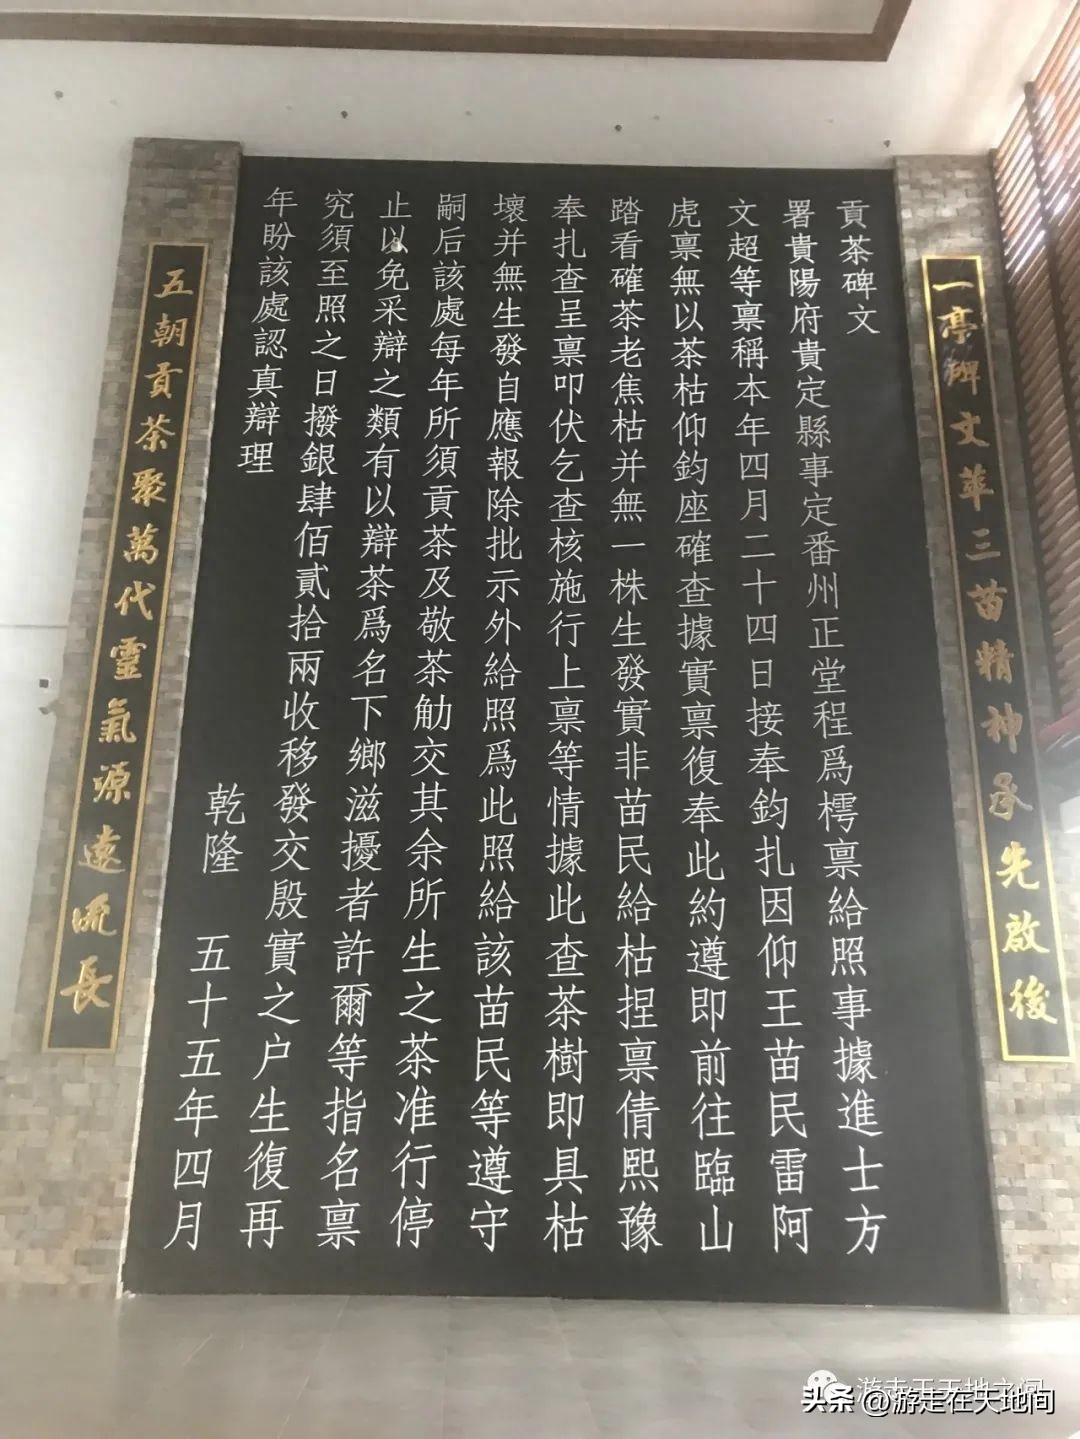 一亭碑文萃三苗精神承先啟後
貢茶碑文
署貴陽府貴定縣事定番州正堂程爲樗禀給照事據進士方
文超等禀稱本年四月二十四日接奉鈞扎因仰王苗民雷阿
虎禀無以茶枯仰鈞座確查據實禀復奉此約遵即前往臨山
踏看確茶老焦枯并無一株生發實非苗民給枯捏禀倩熙豫
奉扎查呈禀叩伏乞查核施行上禀等情據此查茶樹即具枯
壞并無生發自應報除批示外給照爲此照給該苗民等遵守
嗣后該處每年所須貢茶及敬茶觔交其余所生之茶准行停
止以免采辯之類有以辯茶爲名下鄉滋擾者許爾等指名禀
究須至照之日撥銀肆佰貳拾兩收移發交殷實之户生復再
年盼該處認真辯理
乾隆 五十五年四月
五朝貢茶聚萬代靈氣源遠流長
头条 @游走在天地间